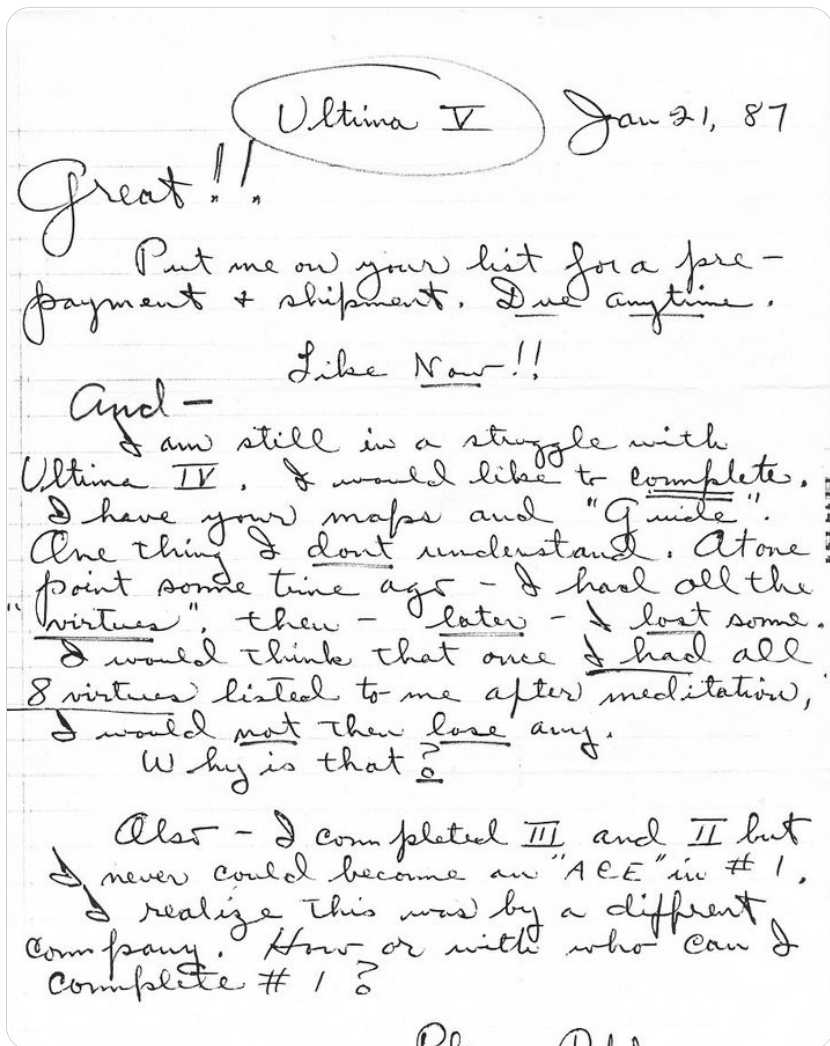 Ultima V Jan 21, 87
Great!!
Put me on your list for a pre-
payment + shipment. Due anytime.
Like Now!!
And -
I am still in a struggle with
Ultima IV. I would like to complete.
I have your maps and "Guide".
One thing I dont understand. At one
point some time ago - I had all the
"virtues", then - later - I lost some.
I would think that once I had all
8 virtues listed to me after meditation,
I would not then lose any.
Why is that?
Also - I completed III and II but
I never could become an "ACE" in # 1.
I realize this was by a diffrent
company. How or with who can I
complete # 1?